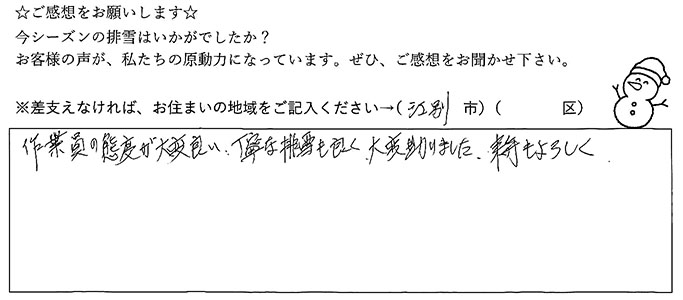 ☆ご感想をお願いします☆
今シーズンの排雪はいかがでしたか？
お客様の声が、私たちの原動力になっています。ぜひ、ご感想をお聞かせ下さい。
※差支えなければ、お住まいの地域をご記入ください→( 江別 市) ( 区)
作業員の態度が大変良い、丁寧な排雪も良く、大変助りました、来年もよろしく